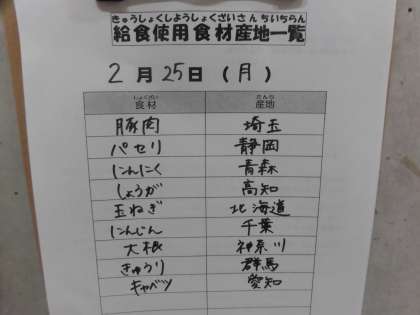 きゅうしょくしようしょくざいさんちいちらん
給食使用食材産地一覧
2月25日(月)
しょくざい さんち
食材 産地
豚肉 埼玉
パセリ 静岡
にんにく 青森
しょうが 高知
玉ねぎ 北海道
にんじん 千葉
大根 神奈川
きゅうり 群馬
キャベツ 愛知